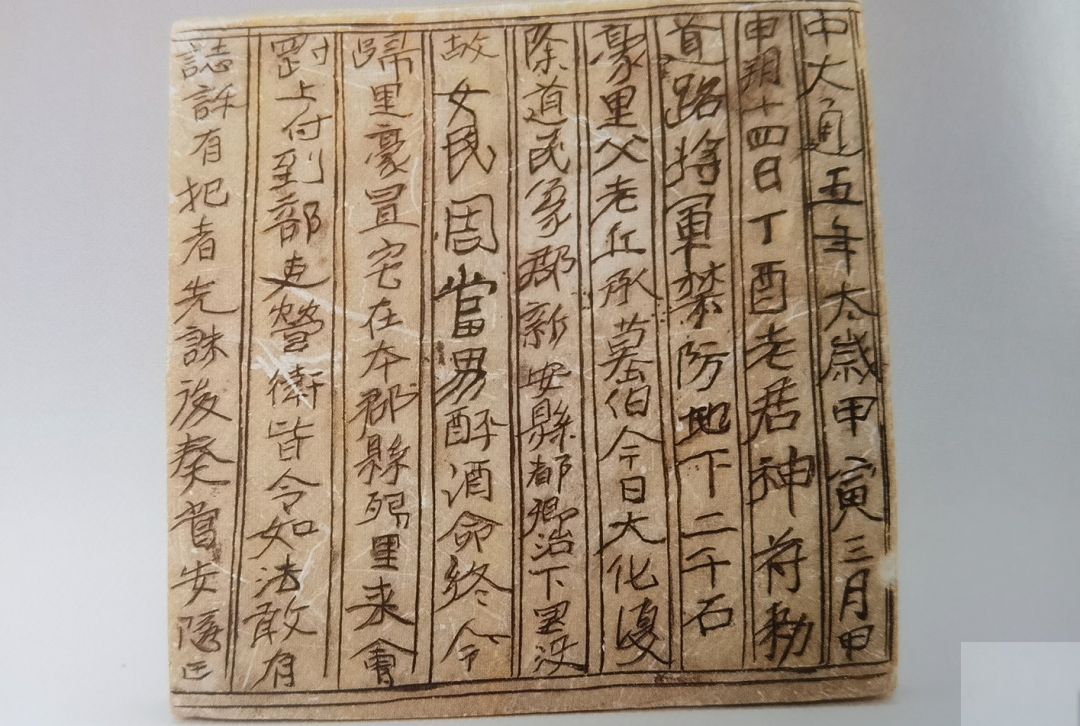 中大通五年太歲甲寅三月甲
申朔十四日丁酉老君神符勑
道路將軍禁防地下二千石
蒿里父老丘承墓伯今日大化復
除道民象郡新安縣都鄉治下里没
故女民周當男醉酒命終今
歸里豪置宅在本郡縣歸里来會
對上付到部吏營衛皆令如法敢有
誌訴有犯者先誅後奏當安隱